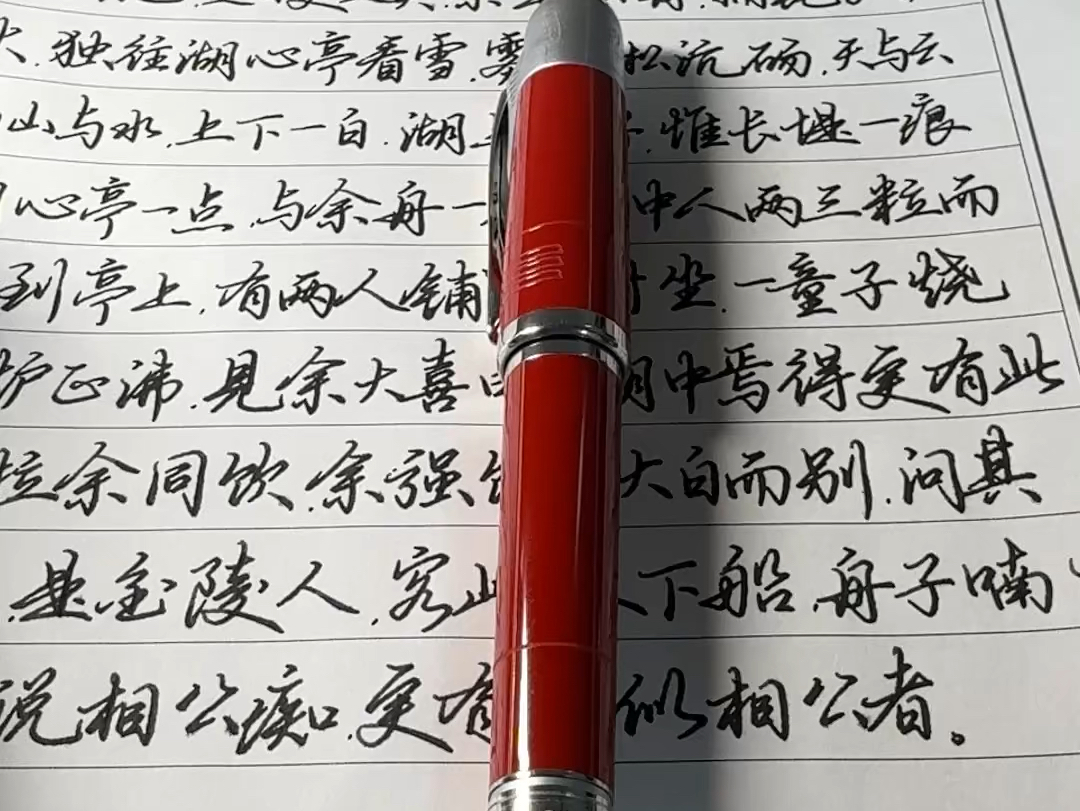 火.独往湖心亭看雪.雾松沆砀.天与云
山与水.上下一白.湖上.惟长堤一痕
心亭一点.与余舟一中人两三粒而
到亭上.有两人铺对坐.一童子烧
炉正沸.见余大喜曰湖中焉得更有此
拉余同饮.余强饮大白而别.问其
.是金陵人.客此下船.舟子喃
说相公痴.更有似相公者。